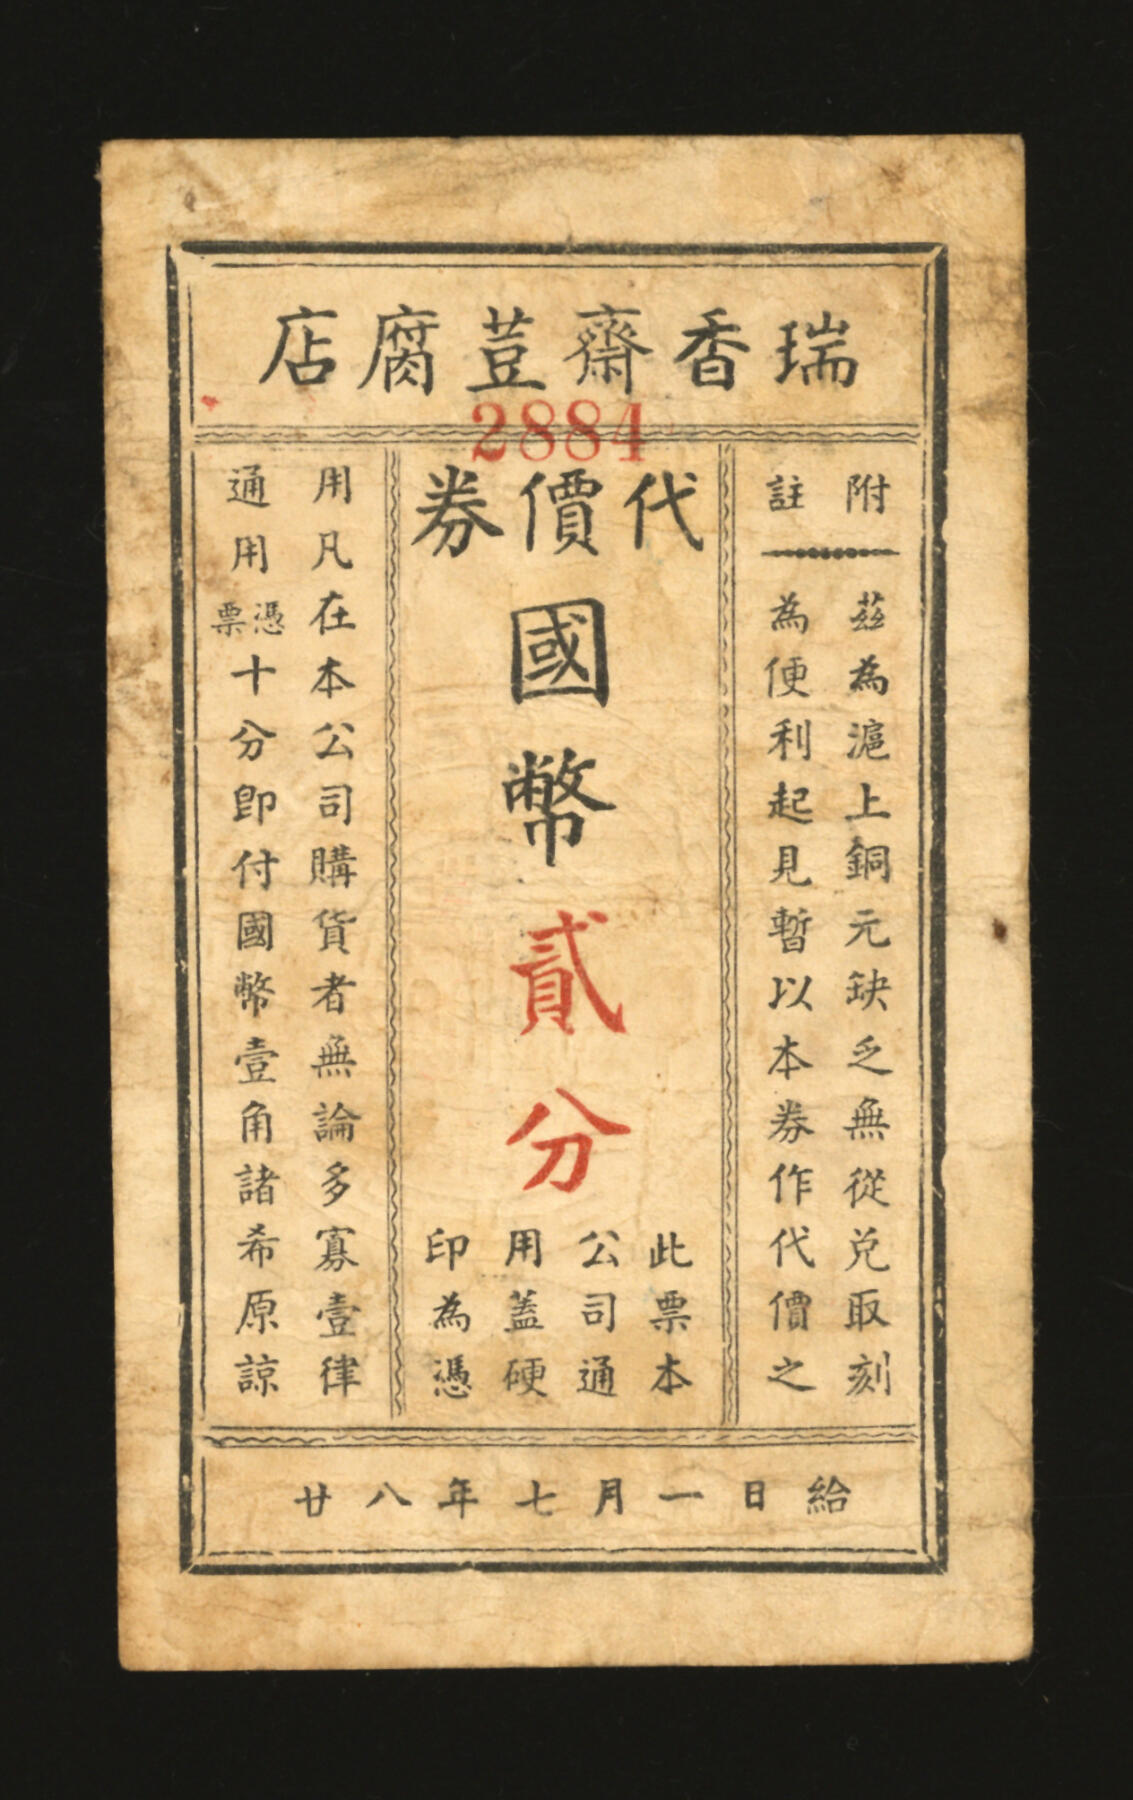 瑞香齋荳腐店
2884
代價券
國幣貳分
此票本
公司通
用蓋硬
印為憑
附註
茲為滬上銅元缺乏無從兌取刻
為便利起見暫以本券作代價之
用凡在本公司購貨者無論多寡壹律
通用憑票十分即付國幣壹角諸希原諒
廿八年七月一日給